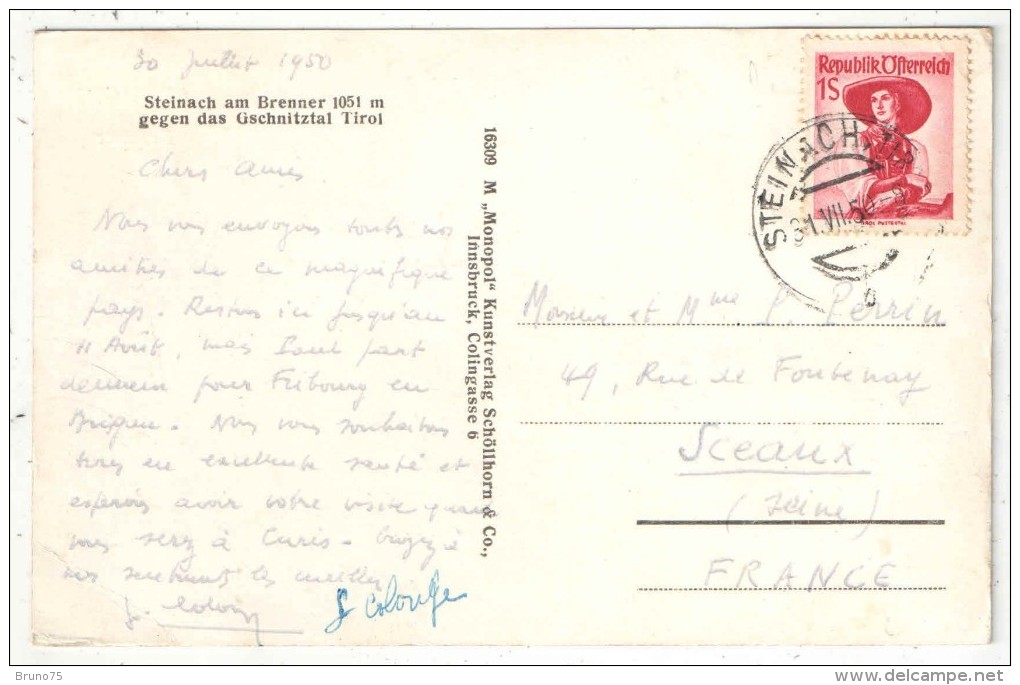 30 Juillet 1950
Steinach am Brenner 1051 m
gegen das Gschnitztal Tirol
Chers amis
Nous vous envoyons toutes nos
amitiés de ce magnifique
pays. Restons ici jusqu'au
11 Août, mais Paul part
demain pour Fribourg en
Brisgau. Nous vous souhaitons
tous en excellente santé et
espérons avoir votre visite quand
vous serez à Curis. Croyez à
nos sentiments les meilleurs
16309 M „Monopol“ Kunstverlag Schöllhorn & Co.,
Innsbruck, Colingasse 6
Republik Österreich
1S
TIROL PUSTERTAL
STEINACH
31.VII.50
b
Monsieur et Mme P. Perrin
49, Rue de Fontenay
Sceaux
(Seine)
FRANCE
Bruno75
delcampe.net